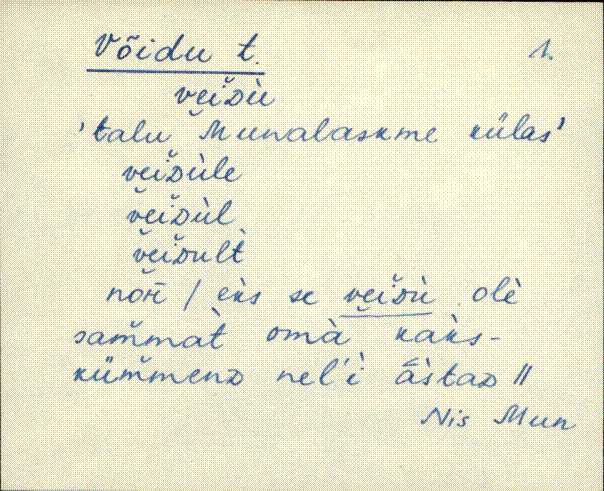 Võidu t. 1.
veĭ͔ᴅù
'talu Munalaskme külas'
vei̮ᴅùle
vei̮ᴅùl
vei̮ᴅult̀
noŕ̄i / eᴋ̀s se vei̮ᴅù olè
sam̆mat̀ omà kaᴋ̀s-
küm̆menᴅ nel'ì ā̀staᴅ ||
Nis Mun